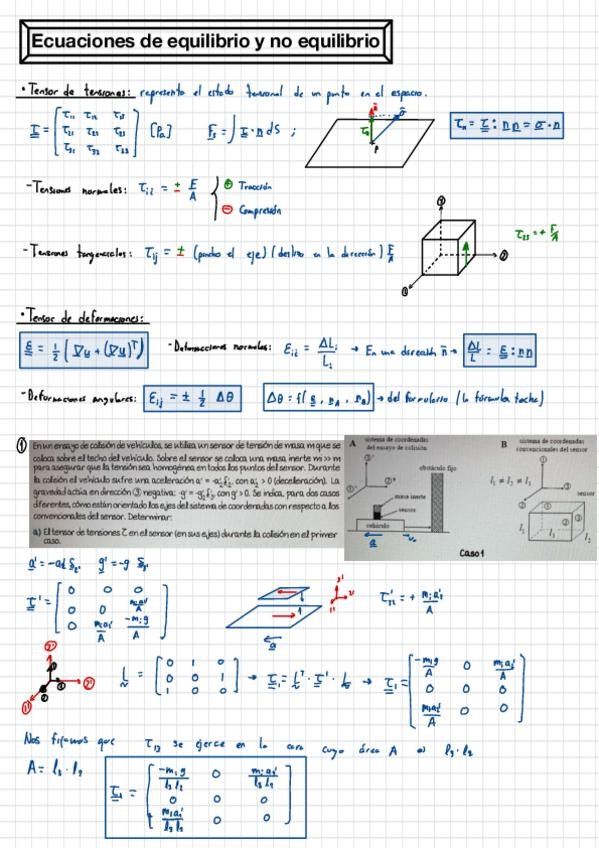 Ecuaciones de equilibrio y no equilibrio
• Tensor de tensiones: representa el estado tensional de un punto en el espacio.
τ = [τ₁₁ τ₁₂ τ₁₃
τ₂₁ τ₂₂ τ₂₃
τ₃₁ τ₃₂ τ₃₃] [Pa] Fs = ∫ τ · n dS ; τn = τ : n n = σ · n
- Tensiones normales: τii = ± F/A { ⊕ Tracción
⊖ Compresión
- Tensiones tangenciales: τij = ± (pincho el eje) (deslizo en la dirección) F/A
τ₂₃ = + F/A
• Tensor de deformaciones:
ε = 1/2 (∇u + (∇u)ᵀ) - Deformaciones normales: εii = ΔLi/Li → En una dirección n̄ → ΔL/L = ε : nn
- Deformaciones angulares: εij = ± 1/2 Δθ Δθ = f(ε, nA, nB) → del formulario (la fórmula tocha)
① En un ensayo de colisión de vehículos, se utiliza un sensor de tensión de masa m que se
coloca sobre el techo del vehículo. Sobre el sensor se coloca una masa inerte m >> m
para asegurar que la tensión sea homogénea en todos los puntos del sensor. Durante
la colisión el vehículo sufre una aceleración
gravedad actúa en dirección ③ negativa:
diferentes, cómo están orientado los ejes del sistema de coordenadas con respecto a los
convencionales del sensor. Determinar:
a) El tensor de tensiones τ en el sensor (en sus ejes) durante la colisión en el primer
caso.
A sistema de coordenadas
del ensayo de colisión
obstáculo fijo
masa inerte
sensor
vehículo
a
B sistema de coordenadas
convencionales del sensor
l₁ ≠ l₂ ≠ l₃
Caso 1
τ' = [0 0 0
0 0 mᵢa'/A
0 mᵢa'/A -mᵢg/A]
L = [0 1 0
0 0 1
1 0 0] → τ₁ = Lᵀ · τ' · L → τ₁ = [-mᵢg/A 0 mᵢa'/A
0 0 0
mᵢa'/A 0 0]
Nos fijamos que τ₁₃ se ejerce en la cara cuyo área A es l₃ · l₂
τ₁ = (-mᵢg/l₃l₂ 0 mᵢa'/l₃l₂
0 0 0
mᵢa'/l₃l₂ 0 0)